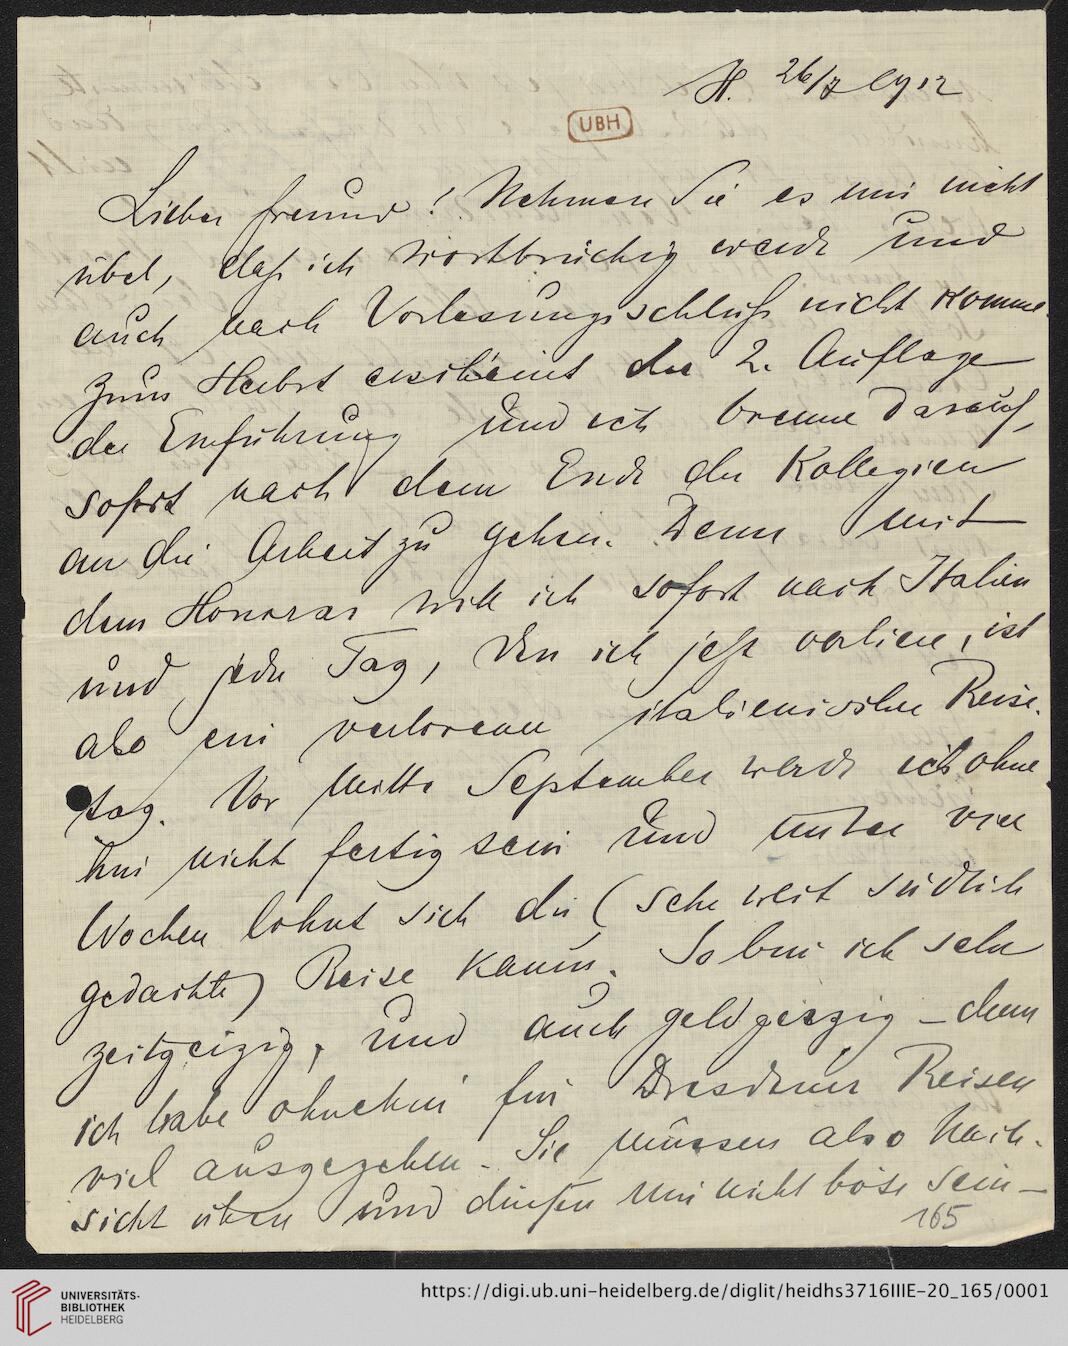 H. 26/7 1912
UBH
Lieber Freund! Nehmen Sie es mir nicht
übel, daß ich wortbrüchig werde und
auch nach Vorlesungsschluß nicht komme.
Zum Herbst erscheint die 2. Auflage
der Einführung und ich brenne darauf,
sofort nach dem Ende der Kollegien
an die Arbeit zu gehen. Denn mit
dem Honorar will ich sofort nach Italien
und jeder Tag, den ich jetzt verliere, ist
also ein verlorener italienischer Reise-
tag. Vor Mitte September werde ich ohne-
hin nicht fertig sein und unter vier
Wochen lohnt sich die (sehr weit südlich
gedachte) Reise kaum. So bin ich sehr
zeitgeizig, und auch geldgeizig – denn
ich habe ohnehin für Dresdener Reisen
viel auszugeben. Sie müssen also Nach-
sicht üben und dürfen mir nicht böse sein –
165
UNIVERSITÄTS-
BIBLIOTHEK
HEIDELBERG
https://digi.ub.uni-heidelberg.de/diglit/heidhs3716IIIE-20_165/0001